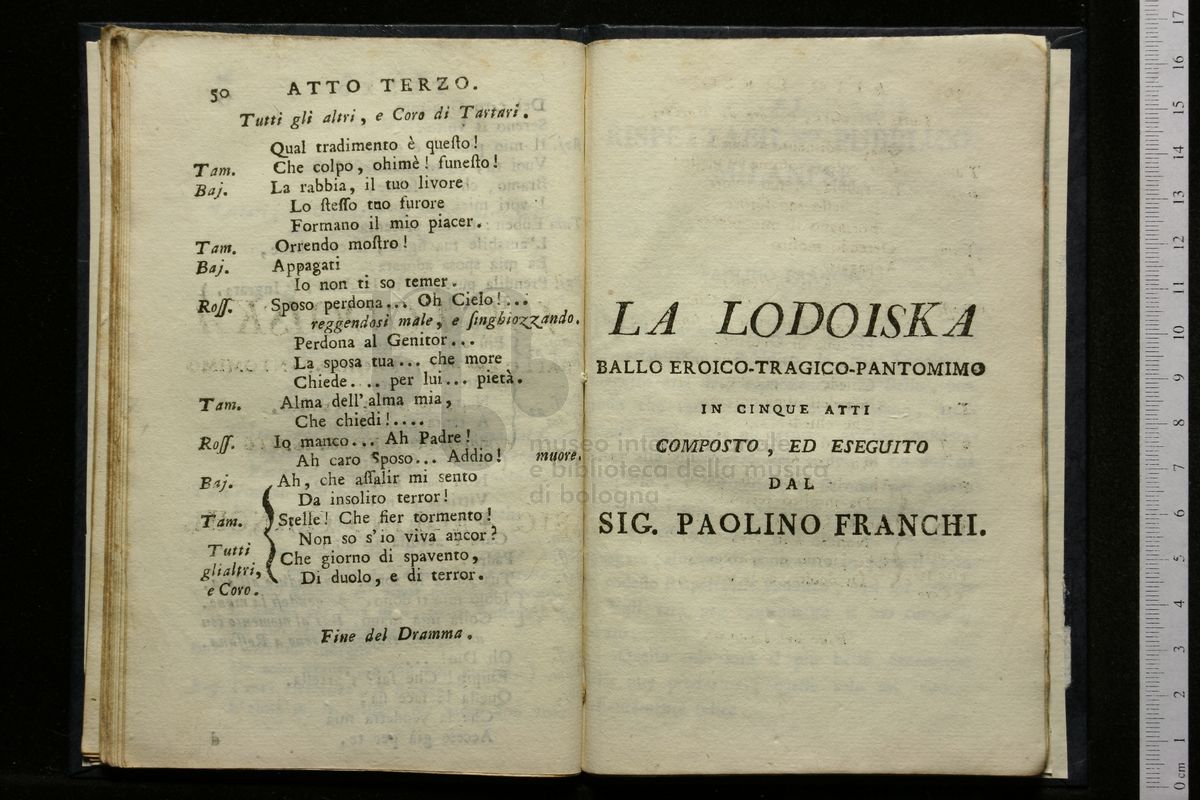 50 ATTO TERZO.
Tutti gli altri, e Coro di Tartari.
Qual tradimento è queſto!
Tam. Che colpo, ohimè! funeſto!
Baj. La rabbia, il tuo livore
Lo ſteſſo tuo furore
Formano il mio piacer.
Tam. Orrendo moſtro!
Baj. Appagati
Io non ti so temer.
Roſſ. Sposo perdona... Oh Cielo!...
reggendosi male, e ſinghiozzando.
Perdona al Genitor...
La sposa tua... che more
Chiede... per lui... pietà.
Tam. Alma dell'alma mia,
Che chiedi!....
Roſſ. Io manco... Ah Padre!
Ah caro Sposo... Addio! muore.
Baj. Ah, che aſſalir mi sento
Da insolito terror!
Tam. Stelle! Che fier tormento!
Non so s'io viva ancor?
Tutti Che giorno di spavento,
gli altri, Di duolo, e di terror.
e Coro.
Fine del Dramma.
LA LODOISKA
BALLO EROICO-TRAGICO-PANTOMIMO
IN CINQUE ATTI
COMPOSTO, ED ESEGUITO
DAL
SIG. PAOLINO FRANCHI.
museo internazionale
e biblioteca della musica
di bologna
0 cm 1 2 3 4 5 6 7 8 9 10 11 12 13 14 15 16 17